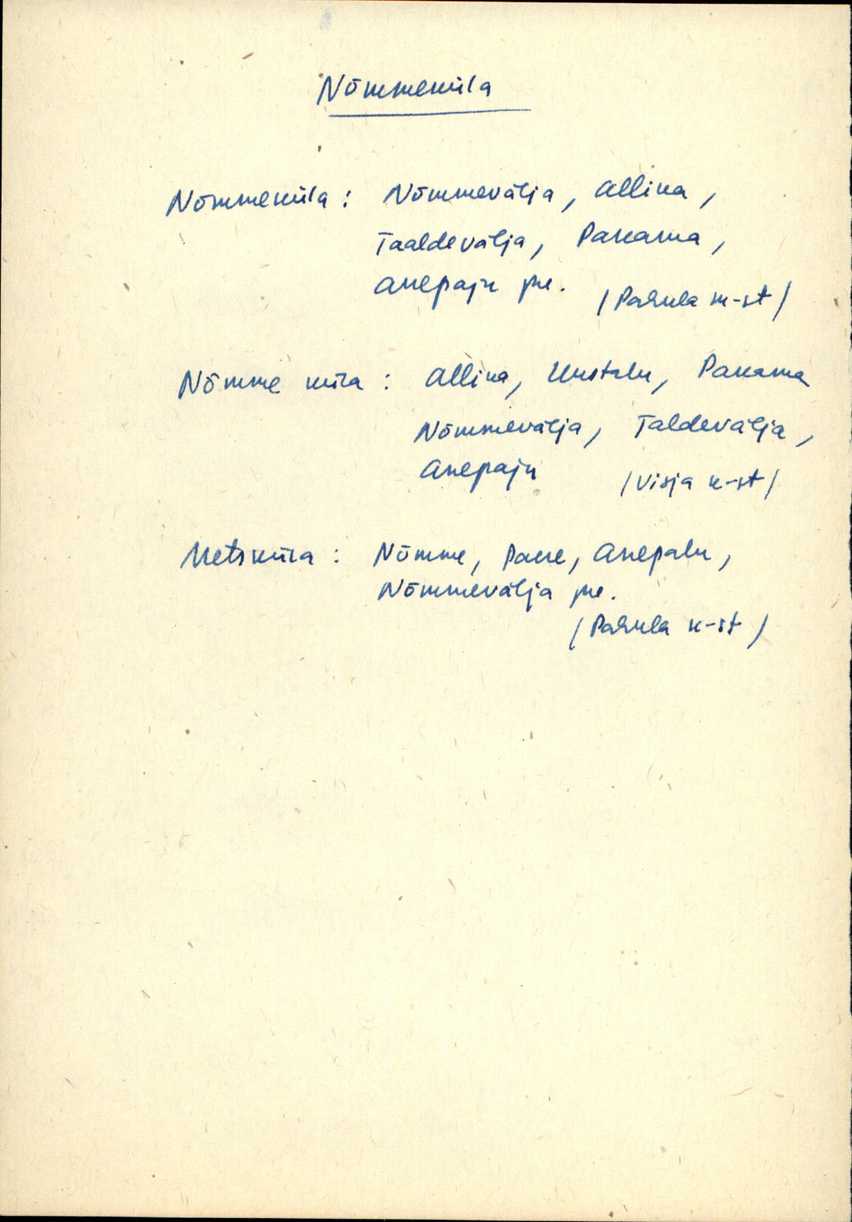 Nõmmeküla
Nõmmeküla: Nõmmevälja, Allika,
Taaldevälja, Pakama,
Anepaju pe.
(Pahula k-st)
Nõmme küla: Allika, Uustalu, Pakama
Nõmmevälja, Taldevälja,
Anepaju
(Visja k-st)
Metsküla: Nõmme, Anepalu,
Nõmmevälja pe.
(Pahula k-st)